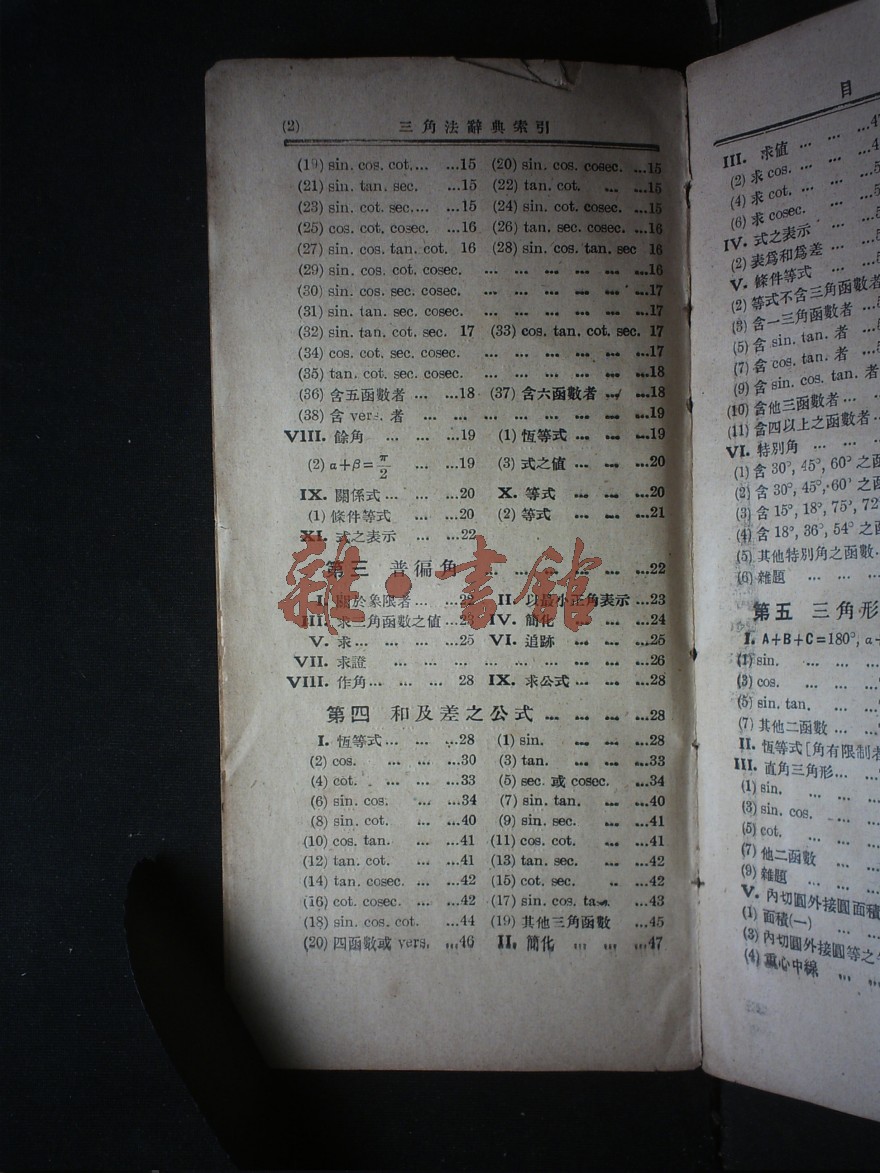 (2) 三角法辭典索引
(19) sin. cos. cot.... ...15 (20) sin. cos. cosec. ...15
(21) sin. tan. sec. ...15 (22) tan. cot. ... ...15
(23) sin. cot. sec.... ...15 (24) sin. cot. cosec. ...15
(25) cos. cot. cosec. ...16 (26) tan. sec. cosec. ...16
(27) sin. cos. tan. cot. 16 (28) sin. cos. tan. sec 16
(29) sin. cos. cot. cosec. ... ... ... ... ... ...16
(30) sin. cos. sec. cosec. ... ... ... ... ... ...17
(31) sin. tan. sec. cosec. ... ... ... ... ... ...17
(32) sin. tan. cot. sec. 17 (33) cos. tan. cot. sec. 17
(34) cos. cot. sec. cosec. ... ... ... ... ... ...17
(35) tan. cot. sec. cosec. ... ... ... ... ... ...18
(36) 含五函數者 ... ...18 (37) 含六函數者 ... ...18
(38) 含 vers. 者 ... ... ... ... ... ... ... ...19
VIII. 餘角 ... ... ...19 (1) 恆等式 ... ... ...19
(2) α+β=π/2 ... ...19 (3) 式之値 ... ... ...20
IX. 關係式 ... ... ...20 X. 等式 ... ... ...20
(1) 條件等式 ... ...20 (2) 等式 ... ... ...21
XI. 式之表示 ... ...22
第三 普徧角 ... ... ... ... ... ... ...22
I. 關於象限者 ... ...22 II. 以最小正角表示 ...23
III. 求三角函數之値 ...23 IV. 簡化 ... ... ...24
V. 求... ... ... ...25 VI. 追跡 ... ... ...25
VII. 求證 ... ... ... ... ... ... ... ... ...26
VIII. 作角... ... ... 28 IX. 求公式 ... ... ...28
第四 和及差之公式 ... ... ... ...28
I. 恆等式 ... ... ...28 (1) sin. ... ... ...28
(2) cos. ... ... ...30 (3) tan. ... ... ...33
(4) cot. ... ... ...33 (5) sec. 或 cosec. ...34
(6) sin. cos. ... ...34 (7) sin. tan. ... ...40
(8) sin. cot. ... ...40 (9) sin. sec. ... ...41
(10) cos. tan. ... ...41 (11) cos. cot. ... ...41
(12) tan. cot. ... ...41 (13) tan. sec. ... ...42
(14) tan. cosec. ... ...42 (15) cot. sec. ... ...42
(16) cot. cosec. ... ...42 (17) sin. cos. tan. ...43
(18) sin. cos. cot. ...44 (19) 其他三角函數 ...45
(20) 四函數或 vers. ...46 II. 簡化 ... ... ...47
雜·書館
目
III. 求値 ... ... ...4
(2) 求 cos. ... ... ...4
(4) 求 cot. ... ... ...5
(6) 求 cosec. ... ...5
IV. 式之表示 ... ...5
(2) 表爲和爲差 ... ...5
V. 條件等式 ... ...
(2) 等式不含三角函數者
(3) 含一三角函數者 ...
(5) 含 sin. tan. 者 ...
(7) 含 cos. tan. 者 ...
(9) 含 sin. cos. tan. 者
(10) 含他三函數者 ... ...
(11) 含四以上之函數者...
VI. 特別角 ... ... ...
(1) 含 30°, 45°, 60° 之函
(2) 含 30°, 45°, 60° 之函
(3) 含 15°, 18°, 75°, 72°
(4) 含 18°, 36°, 54° 之函
(5) 其他特別角之函數
(6) 雜題 ... ... ...
第五 三角形
I. A+B+C=180°, α+
(1) sin. ... ... ...
(3) cos. ... ... ...
(5) sin. tan. ... ...
(7) 其他二函數 ... ...
II. 恆等式[角有限制者
III. 直角三角形... ...
(1) sin. ... ... ...
(3) sin. cos. ... ...
(5) cot. ... ... ...
(7) 他二函數 ... ...
(9) 雜題 ... ... ...
V. 內切圓外接圓面積
(1) 面積(一) ... ...
(3) 內切圓外接圓等之
(4) 重心中線 ... ...